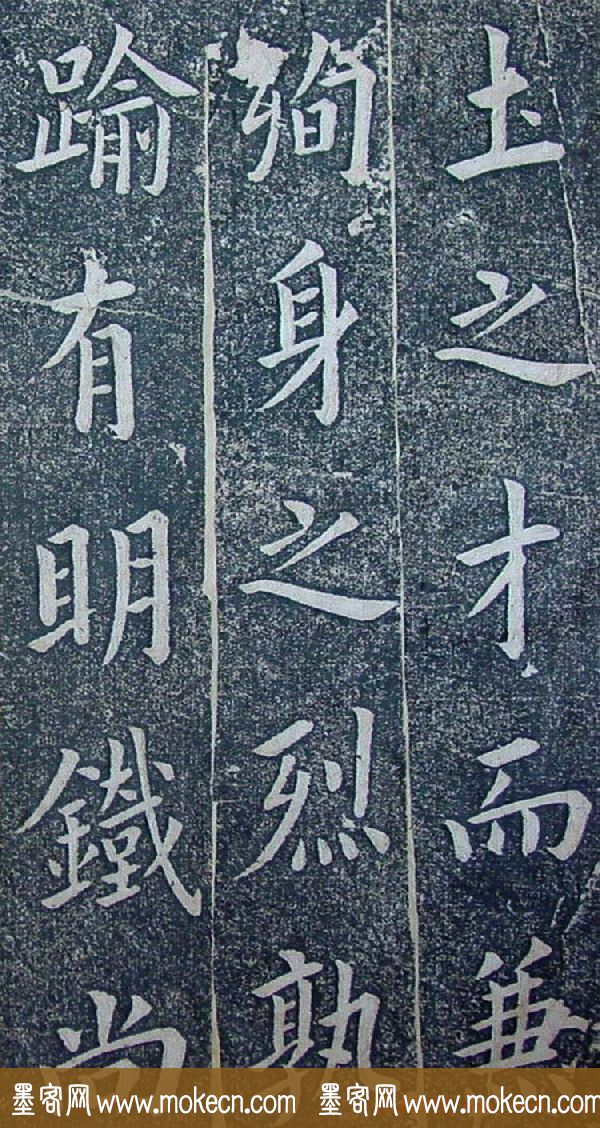 圡之才而兼
殉身之烈孰
踰有明鐵尚
墨客网 www.mokecn.com 墨客网 www.mokecn.com